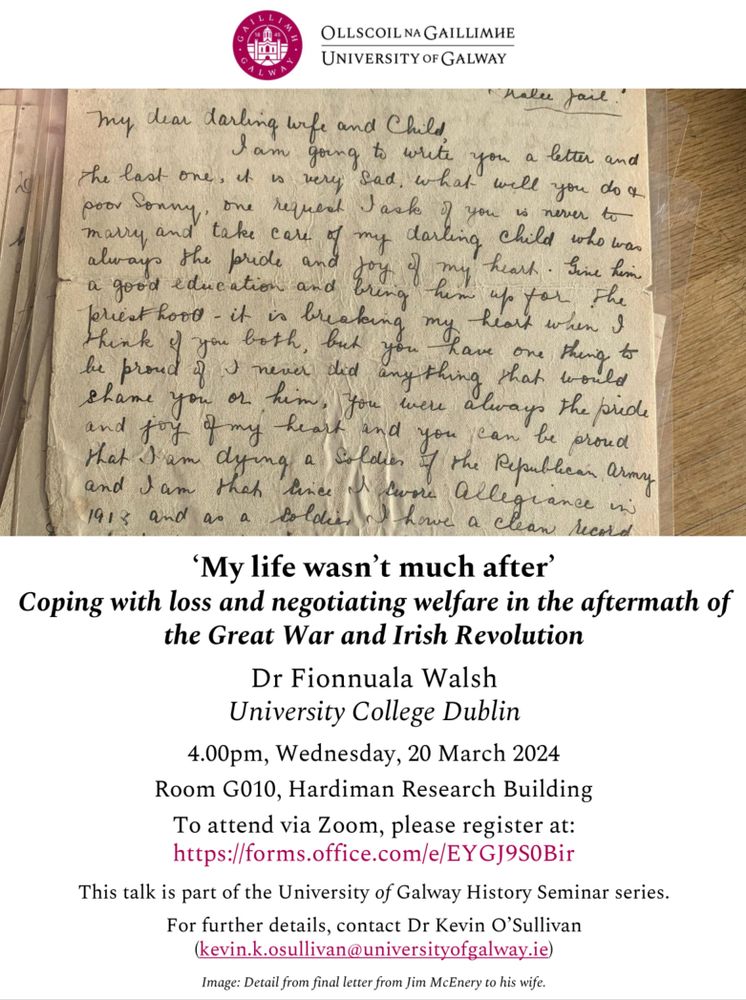 GAILLIMH
1845
GALWAY
OLLSCOIL NA GAILLIMHE
UNIVERSITY OF GALWAY
Tralee Jail.
My dear darling wife and Child,
I am going to write you a letter and
the last one, it is very sad, what will you do &
poor Sonny, one request I ask of you is never to
marry and take care of my darling child who was
always the pride and joy of my heart. Give him
a good education and bring him up for the
priesthood - it is breaking my heart when I
think of you both, but you have one thing to
be proud of I never did anything that would
shame you or him, you were always the pride
and joy of my heart and you can be proud
that I am dying a Soldier of the Republican Army
and I am that since I swore Allegiance in
1913 and as a Soldier I have a clean record
‘My life wasn’t much after’
Coping with loss and negotiating welfare in the aftermath of
the Great War and Irish Revolution
Dr Fionnuala Walsh
University College Dublin
4.00pm, Wednesday, 20 March 2024
Room G010, Hardiman Research Building
To attend via Zoom, please register at:
https://forms.office.com/e/EYGJ9S0Bir
This talk is part of the University of Galway History Seminar series.
For further details, contact Dr Kevin O’Sullivan
(kevin.k.osullivan@universityofgalway.ie)
Image: Detail from final letter from Jim McEnery to his wife.